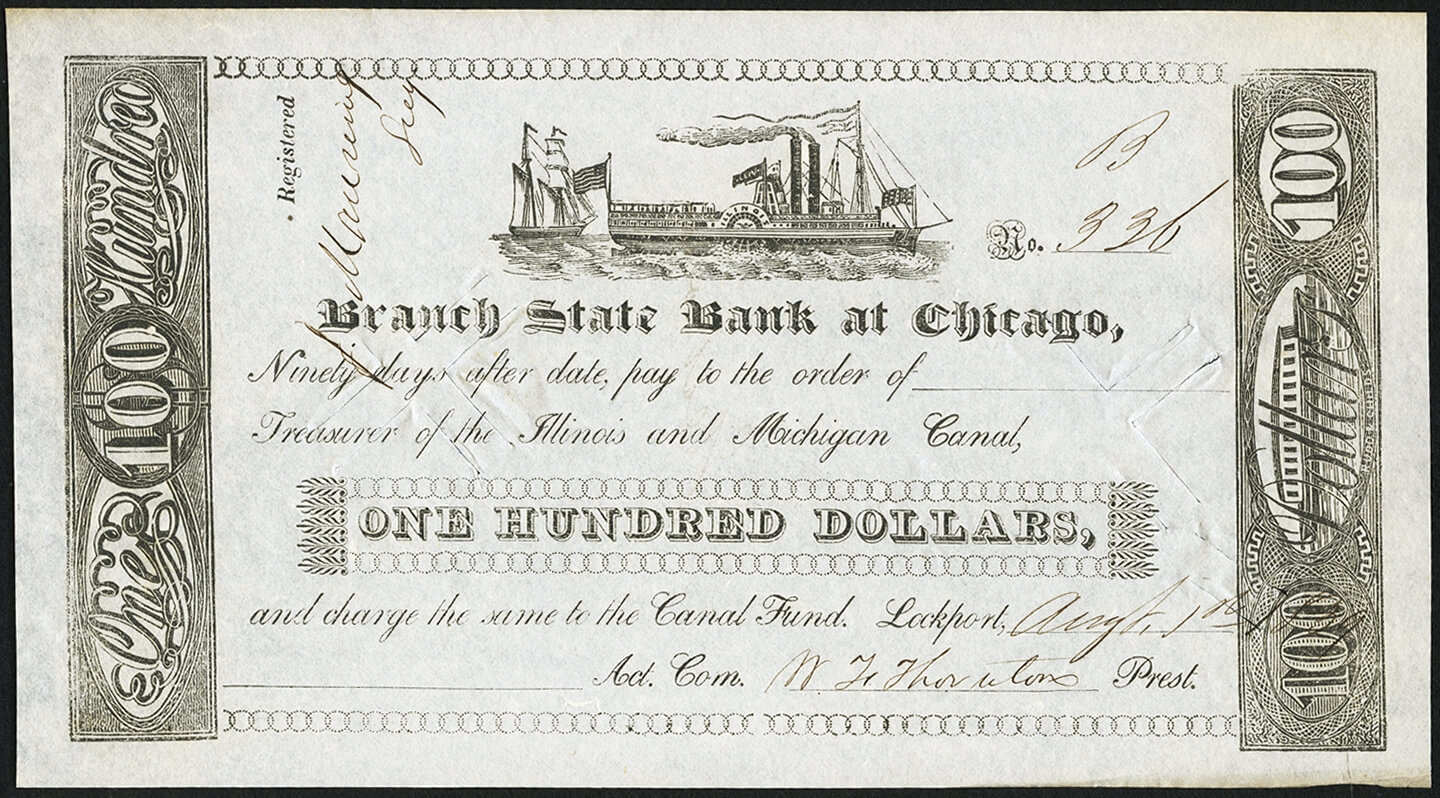 One 100 Hundred
Registered
J Manning
Secy
ILLINOIS
B
No. 336
Branch State Bank at Chicago,
Ninety days after date, pay to the order of
Treasurer of the Illinois and Michigan Canal,
ONE HUNDRED DOLLARS,
and charge the same to the Canal Fund. Lockport, Augt. 1st
Act. Com. W. F. Thornton Prest.
100 Dollars 100